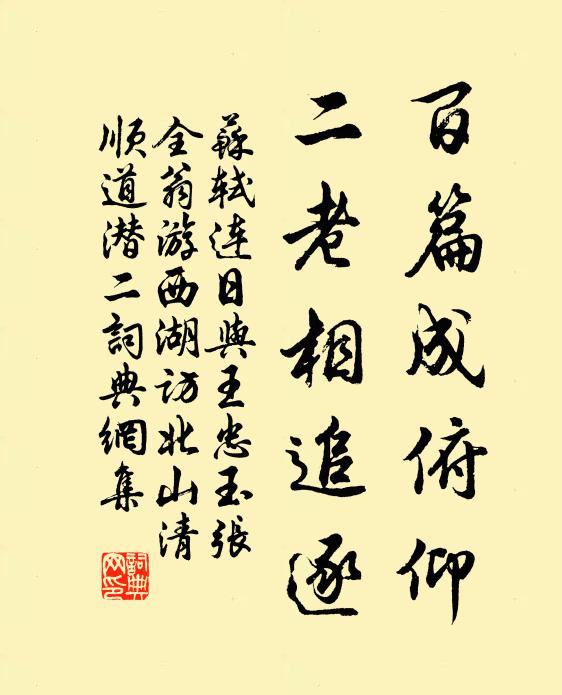 百篇成俯仰
二老相追逐
蘇軾连日與王忠玉張
全翁游西湖访北山清
順道潜二詞典網集
詞典网印